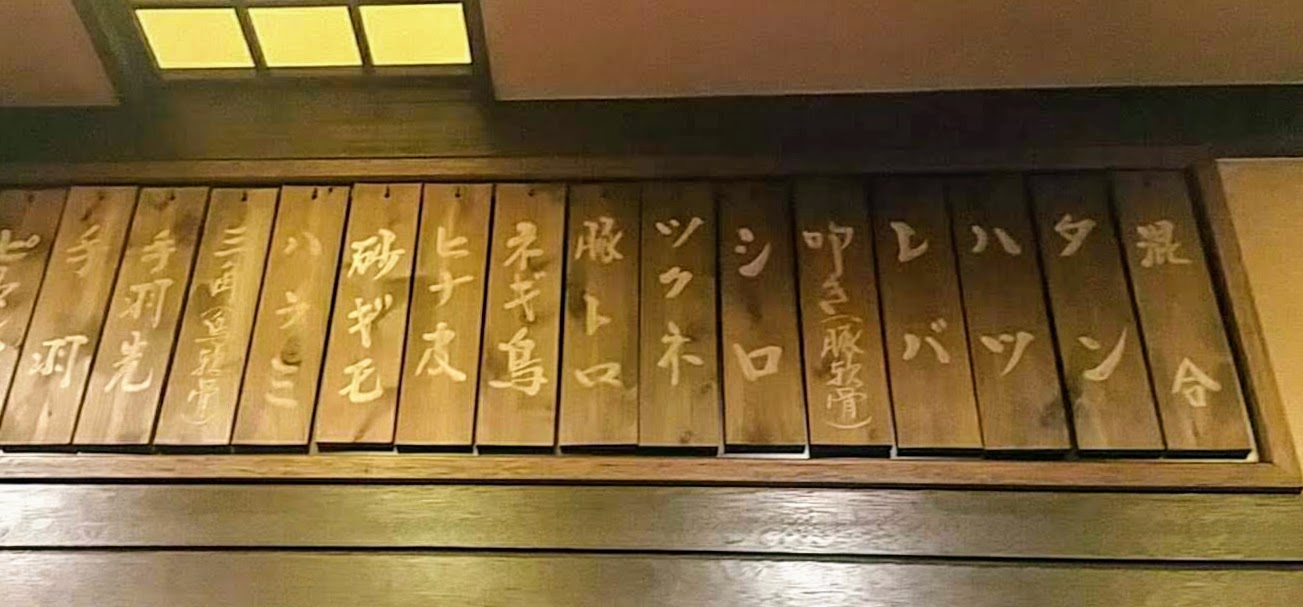 混合
タン
ハツ
レバ
叩き(豚軟骨)
シロ
ツクネ
豚トロ
ネギ鳥
ヒナ皮
砂ギモ
ハラミ
三角(鳥軟骨)
手羽先
手羽